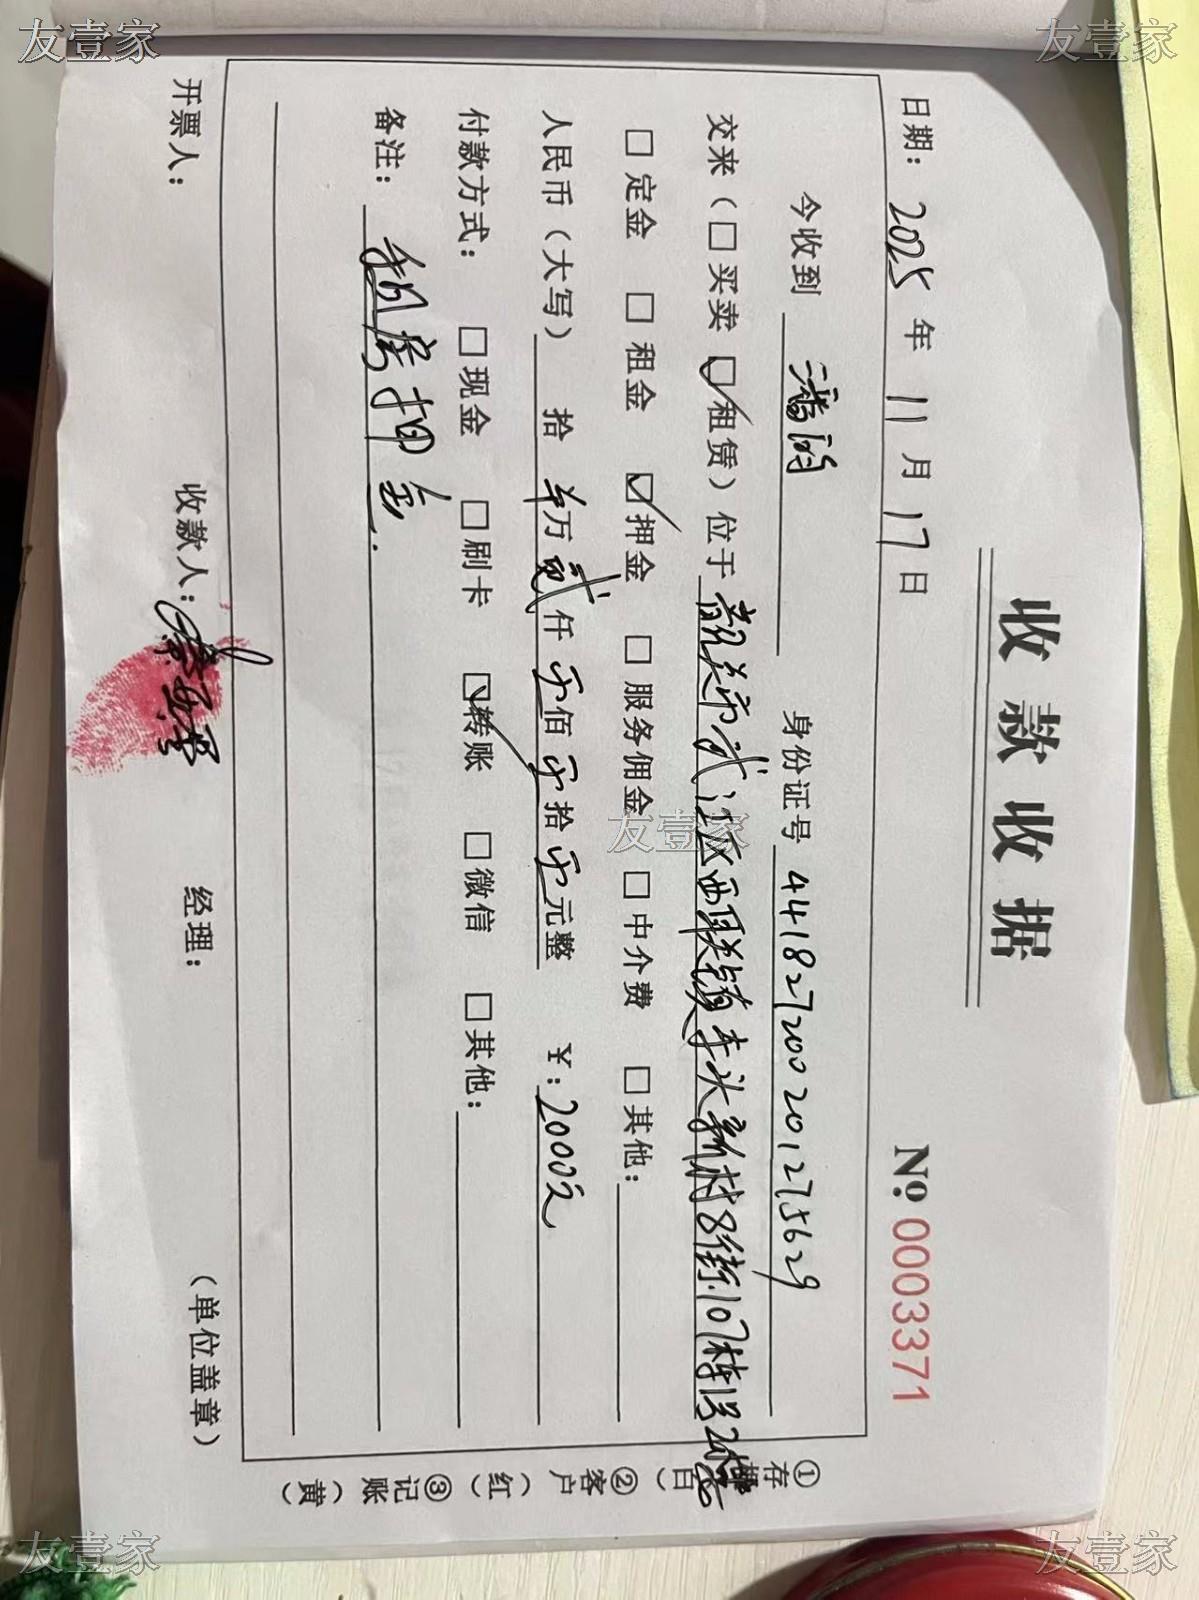 友壹家
友壹家
收款收据
№ 0003371
日期：2025年11月17日
今收到 潘 身份证号 441827200201275629
交来（□买卖 ☑租赁）位于 韶关市武江区西联镇车头新村8街107栋
□定金 □租金 ☑押金 □服务佣金 □中介费 □其他：
人民币（大写） 拾 零万贰仟零佰零拾零元整 ￥：2000元
付款方式： □现金 □刷卡 ☑转账 □微信 □其他：
备注： 租房押金.
开票人： 收款人： 经理： （单位盖章）
①存根（白） ②客户（红） ③记账（黄）
友壹家
友壹家
友壹家